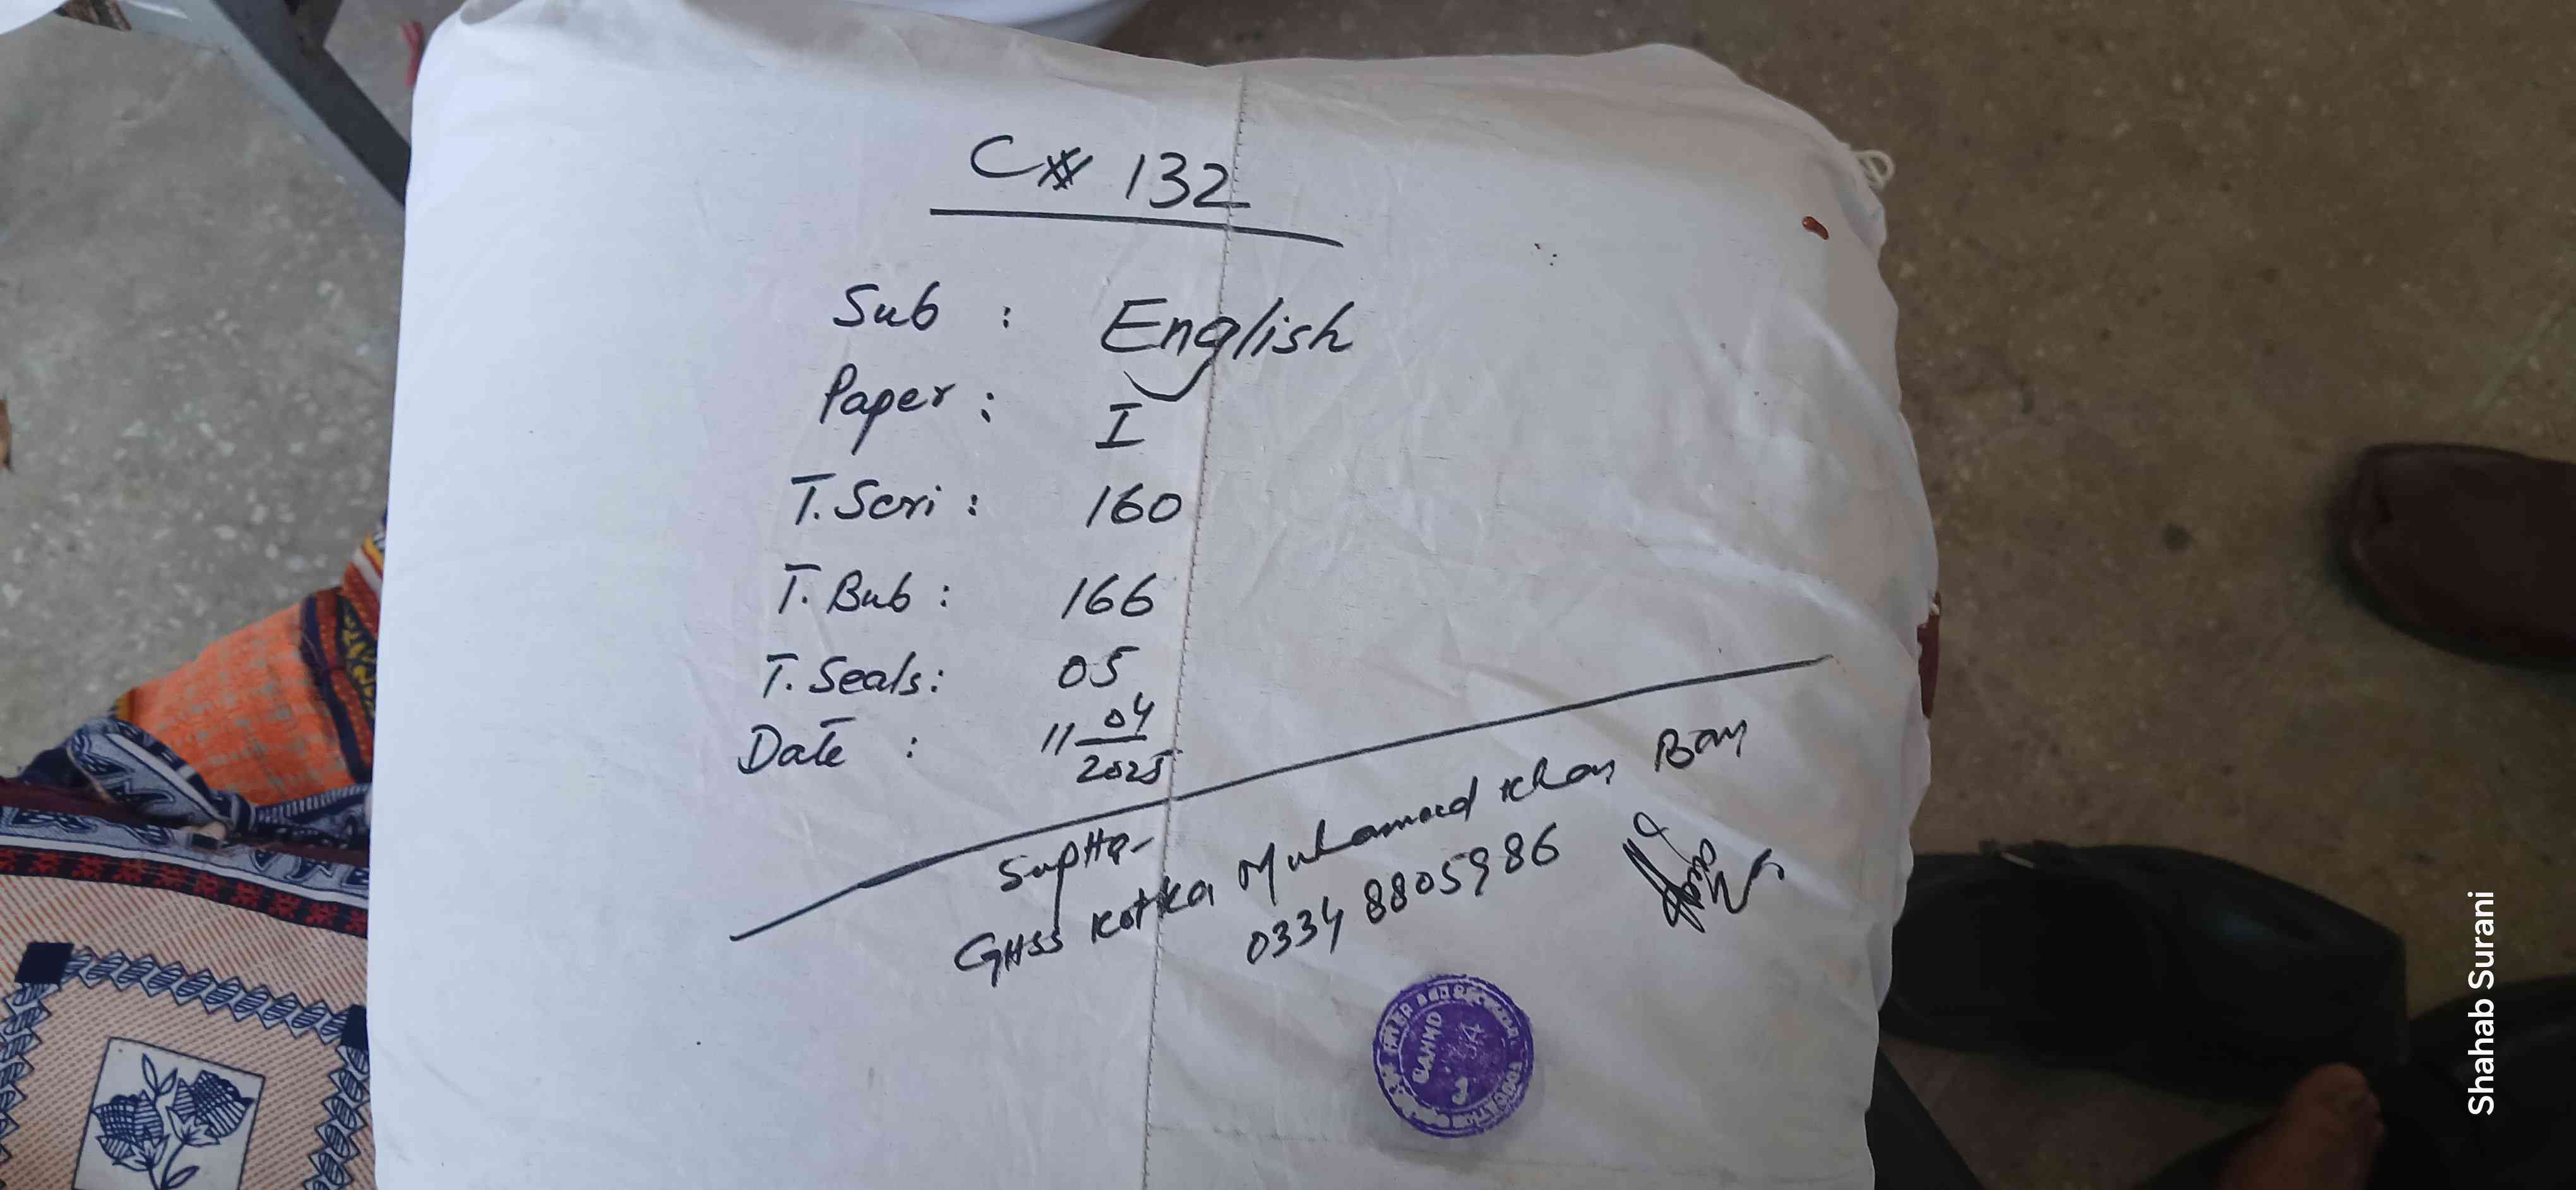 C# 132
Sub : English
Paper : I
T. Scri : 160
T. Bub : 166
T. Seals : 05
Date : 11 04/2025
Supttd-
GHSS Kotka Muhammad Khan
0334 8805986
BANNU
Shahab Surani